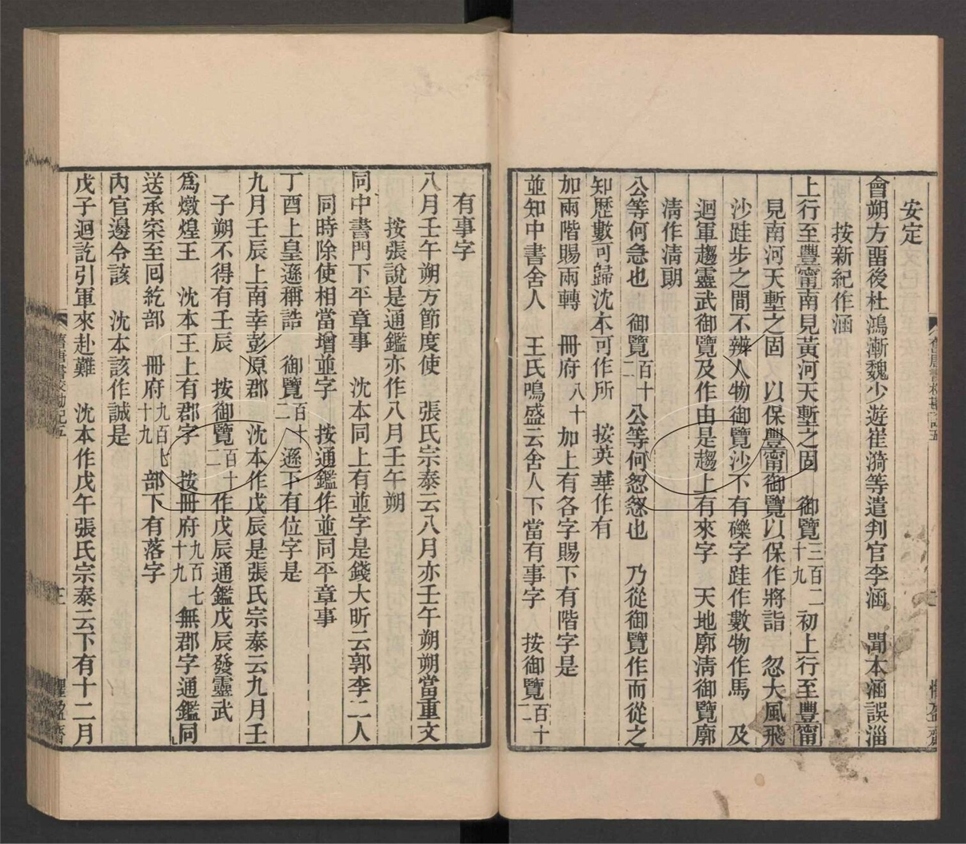 安定
會朔方畱後杜鴻漸魏少遊崔漪等遣判官李涵　聞本涵誤淄
按新紀作涵
上行至豐甯南見黃河天塹之固　御覽三百二十九初上行至豐甯
見南河天塹之固　以保豐甯御覽以保作將詣　忽大風飛
沙跬步之間不辨人物御覽沙下有礫字跬作數物作馬　及
迴軍趨靈武御覽及作由是趨上有來字　天地廓清御覽廓
清作清朗
公等何急也　御覽百十二公等何怱怱也　乃從御覽作而從之
知歷數可歸沈本可作所　按英華作有
加兩階賜兩轉　冊府八十加上有各字賜下有階字是
並知中書舍人　王氏鳴盛云舍人下當有事字　按御覽百十二
有事字
八月壬午朔方節度使　張氏宗泰云八月亦壬午朔朔當重文
按張說是通鑑亦作八月壬午朔
同中書門下平章事　沈本同上有並字是錢大昕云郭李二人
同時除使相當增並字　按通鑑作並同平章事
丁酉上皇遜稱誥　御覽百十二遜下有位字是
九月壬辰上南幸彭原郡　沈本作戊辰是張氏宗泰云九月壬
子朔不得有壬辰　按御覽百十二作戊辰通鑑戊辰發靈武
爲燉煌王　沈本王上有郡字　按冊府九百七十九無郡字通鑑同
送承寀至回紇部　冊府九百七十九部下有落字
內官邊令該　沈本該作誠是
戊子迴訖引軍來赴難　沈本作戊午張氏宗泰云下有十二月
舊唐書校勘記五
懼盈齋